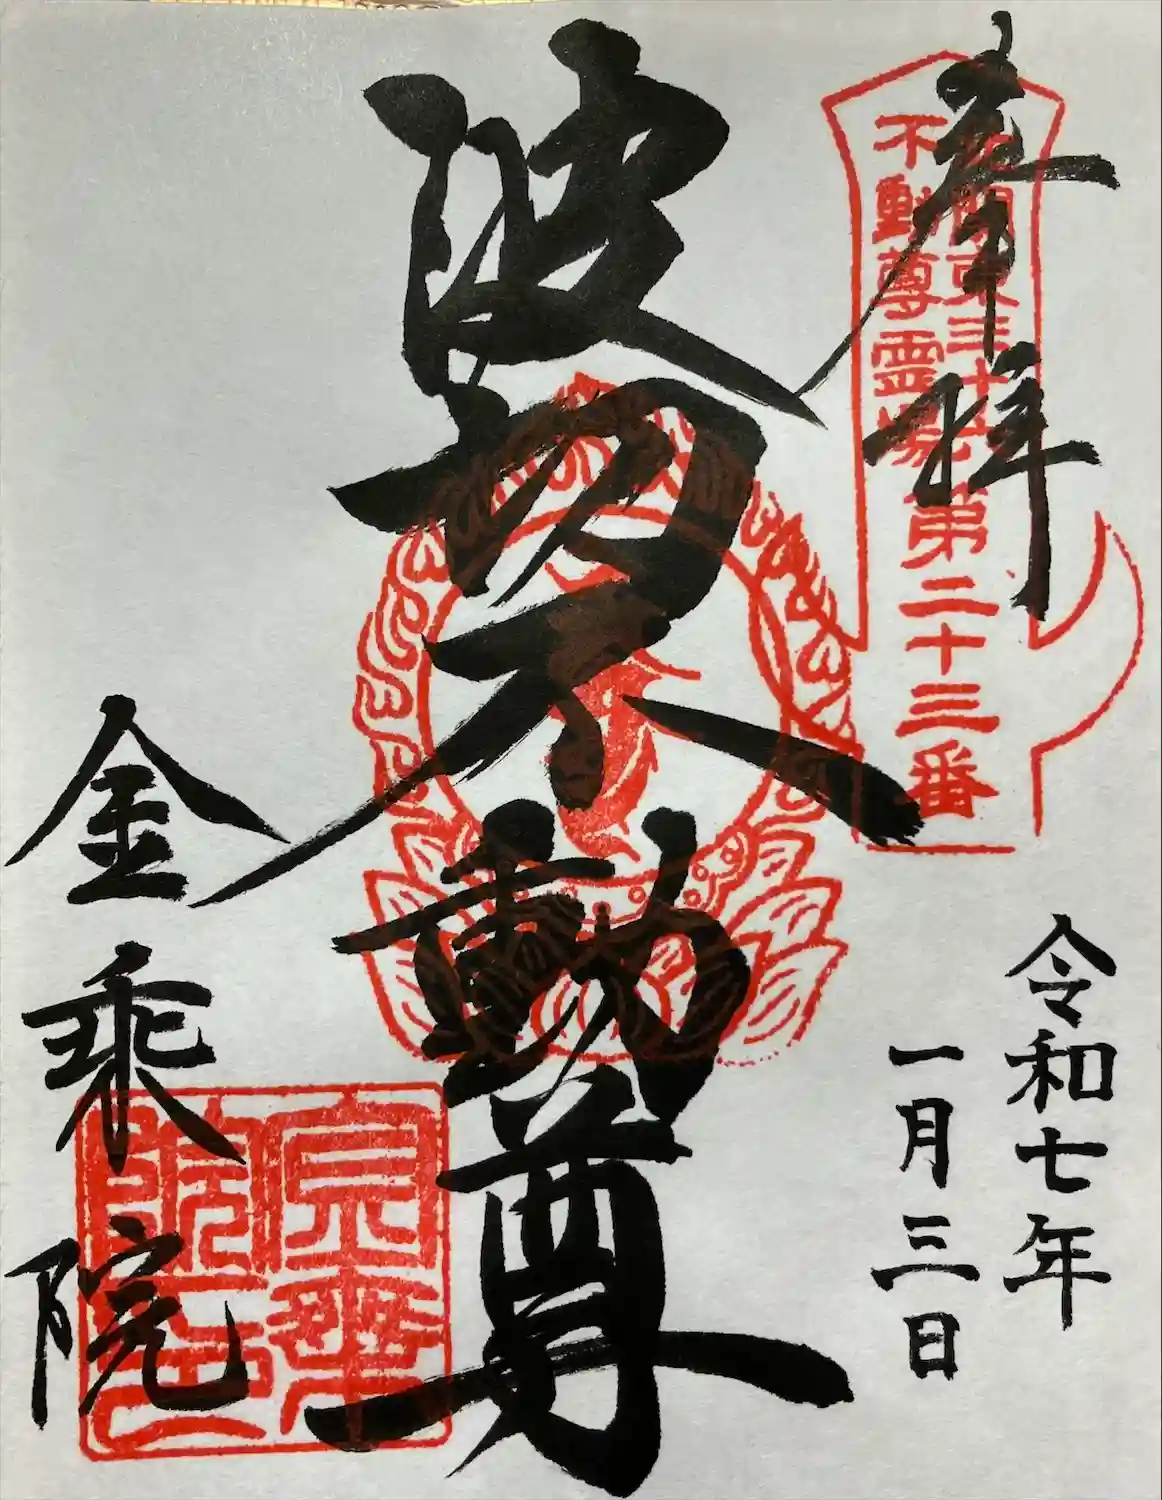 奉拝
北関東三十六
不動尊霊場
第二十三番
令和七年
一月三日
波切不動尊
金乗院